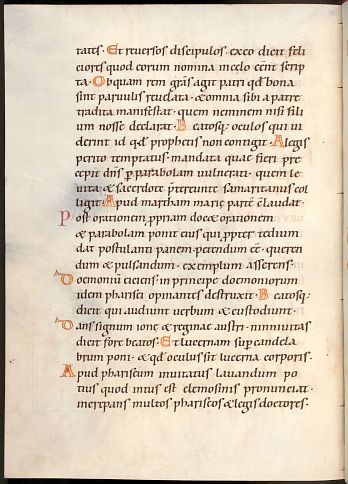 tatis. Et reuersos discipulos. ex eo dicit feli
ciores quod eorum nomina in celo cent scrip
ta. Obquam rem grãs agit patri qđ bona
sint paruulis reuelata. &omnia sibi a patre
tradita manifestat. quem neminem nisi fili
um nosse declarat. Beatosq; oculos qui ui
derint id qđ prophetis non contigit. Alegis
perito temptatus. mandata quae fieri pre
cepit dñs p parabolam uulnerati. quem le
uita & sacerdote p̃treunte samaritanus col
ligit. Apud martham mariç partẽ cllaudat.
Post orationem ppriam doc& orationem
& parabolam ponit eius qui ppter tedium
dat postulanti panem. petendum cẽ. queren
dum & pulsandum. exemplum asserens.
Doemoniũ eiciens. in principe doemoniorum
idem pharisei opinantes destruxit. Beatosq;
dicit qui audiunt uerbum & custodiunt.
Dans signum ione & reginae austri. niniuitas
dicit fore beatos. Et lucernam sup candela
brum poni. & qđ oculus sit lucerna corporis.
Apud phariseum inuitatus lauandum po
tius quod intus est elemosinis pronunciat.
increpans multos phariseos & legis doctores.